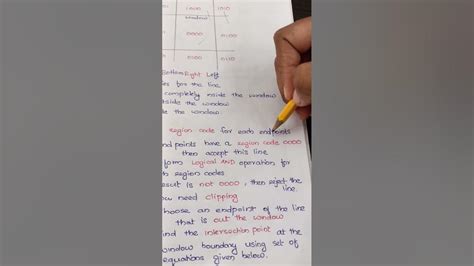 1000 1010
window
0000
0100
Bottom Right Left
for the line
completely inside the window
the window
the window
region code for each endpoints
points have a region code 0000
then accept this line
Logical AND operation for
region codes
is not 0000, then reject the
line.
need clipping
choose an endpoint of the line
that is out the window
the intersection point at the
window boundary using set of
equations given below.